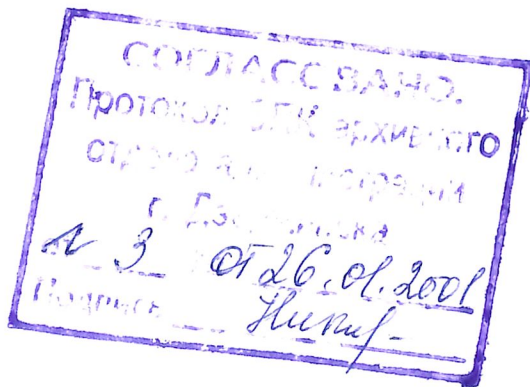 СОГЛАСОВАНО.
Протокол ЭПК архивного
отдела администрации
г.
№ 3 от 26.01.2001
Подпись